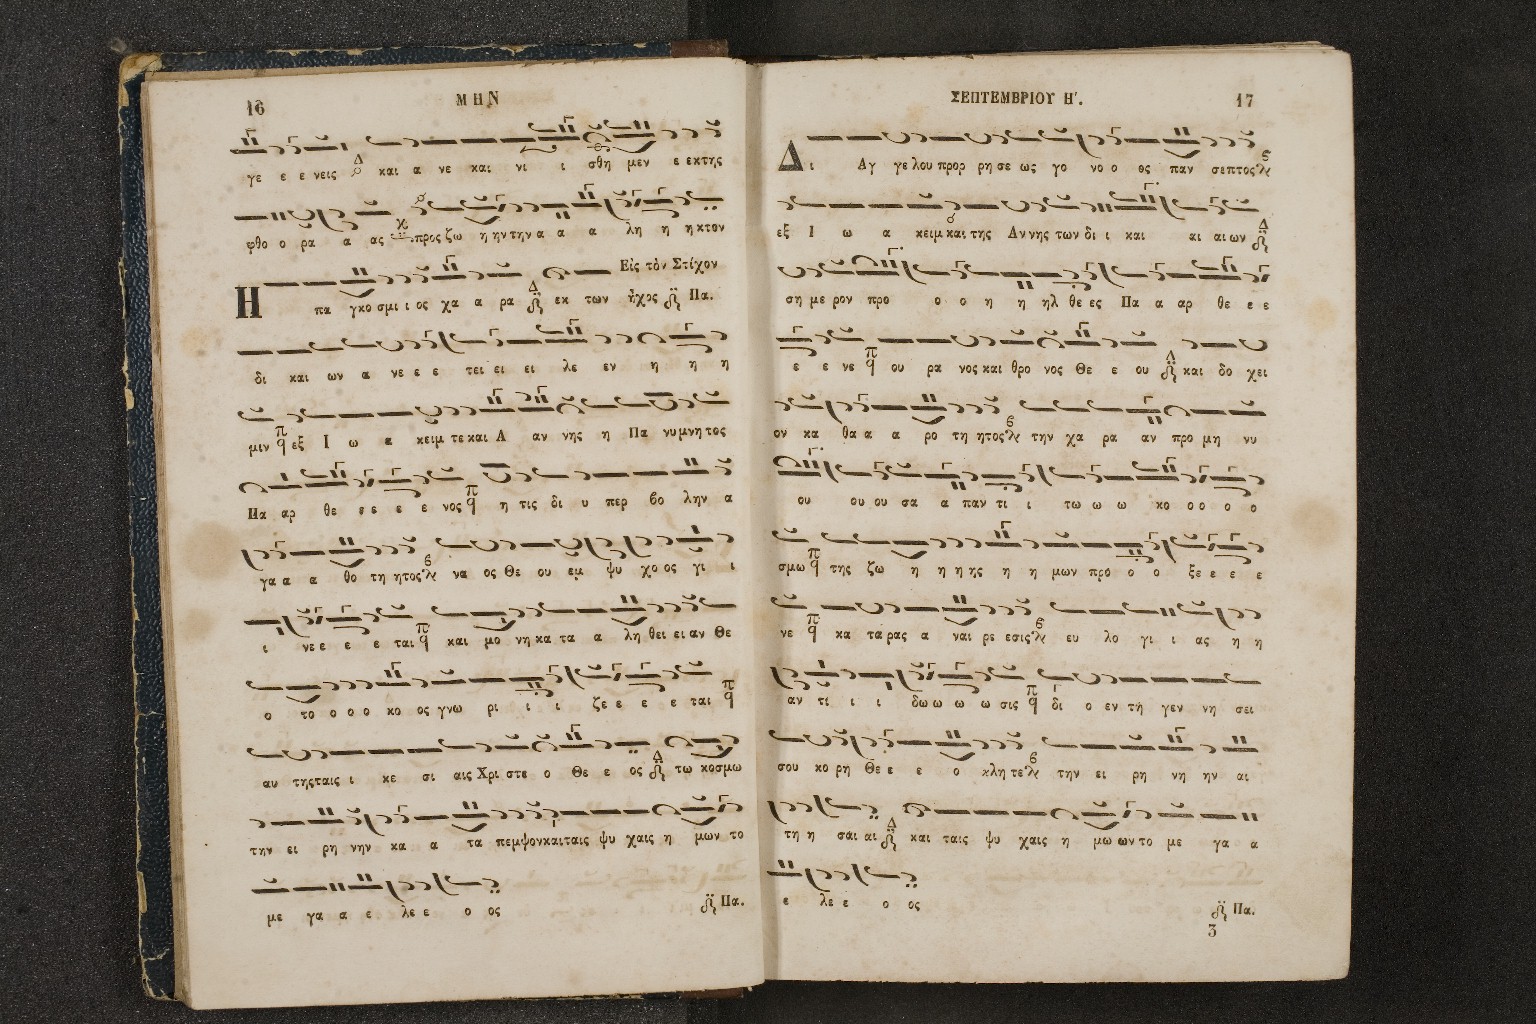 16
ΜΗΝ
γε ε ε νεις Δ και α νε και νι ι σθη μεν ε εκτης
φθο ο ρα α ας προς ζω η ην την α α α λη η η κτον
Εἰς τὸν Στίχον
Η πα γκο σμι ι ος χα α ρα Δ εκ των ἦχος Πα.
δι και ων α νε ε ε τει ει ει λε εν η η η
μιν π q εξ Ι ω α κειμ τε και Α αν νης η Πα νυμνητος
Πα αρ θε ε ε ε ε νος π q η τις δι υ περ βο λην α
γα α α θο τη ητος να ος Θε ου εμ ψυ χο ος γι ι
ι νε ε ε ε ται π q και μο νη κα τα α λη θει ει αν Θε
ο το ο ο ο κο ος γνω ρι ι ι ζε ε ε ε ται π q
αυ της ταις ι κε σι αις Χρι στε ο Θε ε ος Δ τω κοσμω
την ει ρη νην κα α τα πεμψον και ταις ψυ χαις η μων το
με γα α ε λε ε ο ος Πα.
ΣΕΠΤΕΜΒΡΙΟΥ Η΄.
17
Δ ι Αγ γε λου προρ ρη σε ως γο νο ο ος παν σεπτος
εξ Ι ω α κειμ και της Αν νης των δι ι και αι αι ων Δ
ση με ρον προ ο ο η η ηλ θε ες Πα α αρ θε ε ε
ε ε νε π q ου ρα νος και θρο νος Θε ε ου Δ και δο χει
ον κα θα α α ρο τη ητος την χα ρα αν προ μη νυ
ου ου ου σα α παν τι ι τω ω ω κο ο ο ο ο
σμω π q της ζω η η η ης η η μων προ ο ο ξε ε ε ε
νε π q κα τα ρας α ναι ρε εσις ευ λο γι ι ας η η
αν τι ι ι δω ω ω ω σις π q δι ο εν τη γεν νη σει
σου κο ρη Θε ε ε ο κλη τε την ει ρη νη ην αι
τη η σαι αι Δ και ταις ψυ χαις η μω ων το με γα α
ε λε ε ο ος Πα.
3